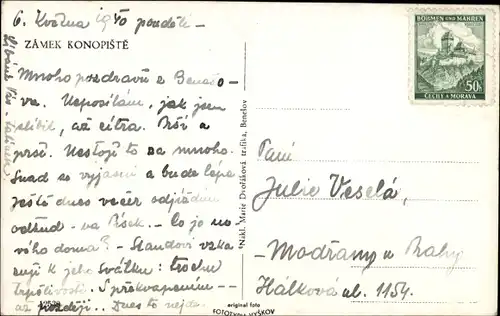 6. Května 1940 pondělí –
ZÁMEK KONOPIŠTĚ
Mnoho pozdravů z Benešo-
va. Neposílám, jak jsem
slíbil, až zítra. Prší a
prší. Nestojí to za mnoho.
Snad se vyjasní a bude lépe.
Ještě dnes večer odjíždím
odtud – na Písek. – Co je no-
vého doma? – Standovi vzka
zuji k jeho svátku: trochu
trpělivosti. S překvapením –
až později.. Dnes to nejde.
Nákl. Marie Dvořáková, trafika, Benešov
original foto
FOTOTYPIA VYŠKOV
BÖHMEN UND MÄHREN
50h
ČECHY A MORAVA
Paní
Julie Veselá,
– Modřany u Prahy
Hálkova ul. 1154.